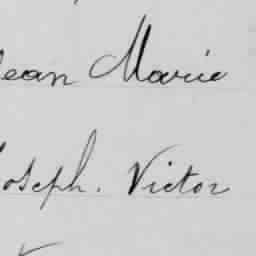 Jean Marie
Joseph. Victor